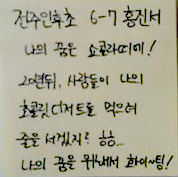 전주인후초 6-7 홍진서
나의 꿈은 쇼콜라띠에!
20년뒤, 사람들이 나의
초콜릿디저트를 먹으려
줄을 서겠지? ㅎㅎ...
나의 꿈을 위해서 화이~팅!